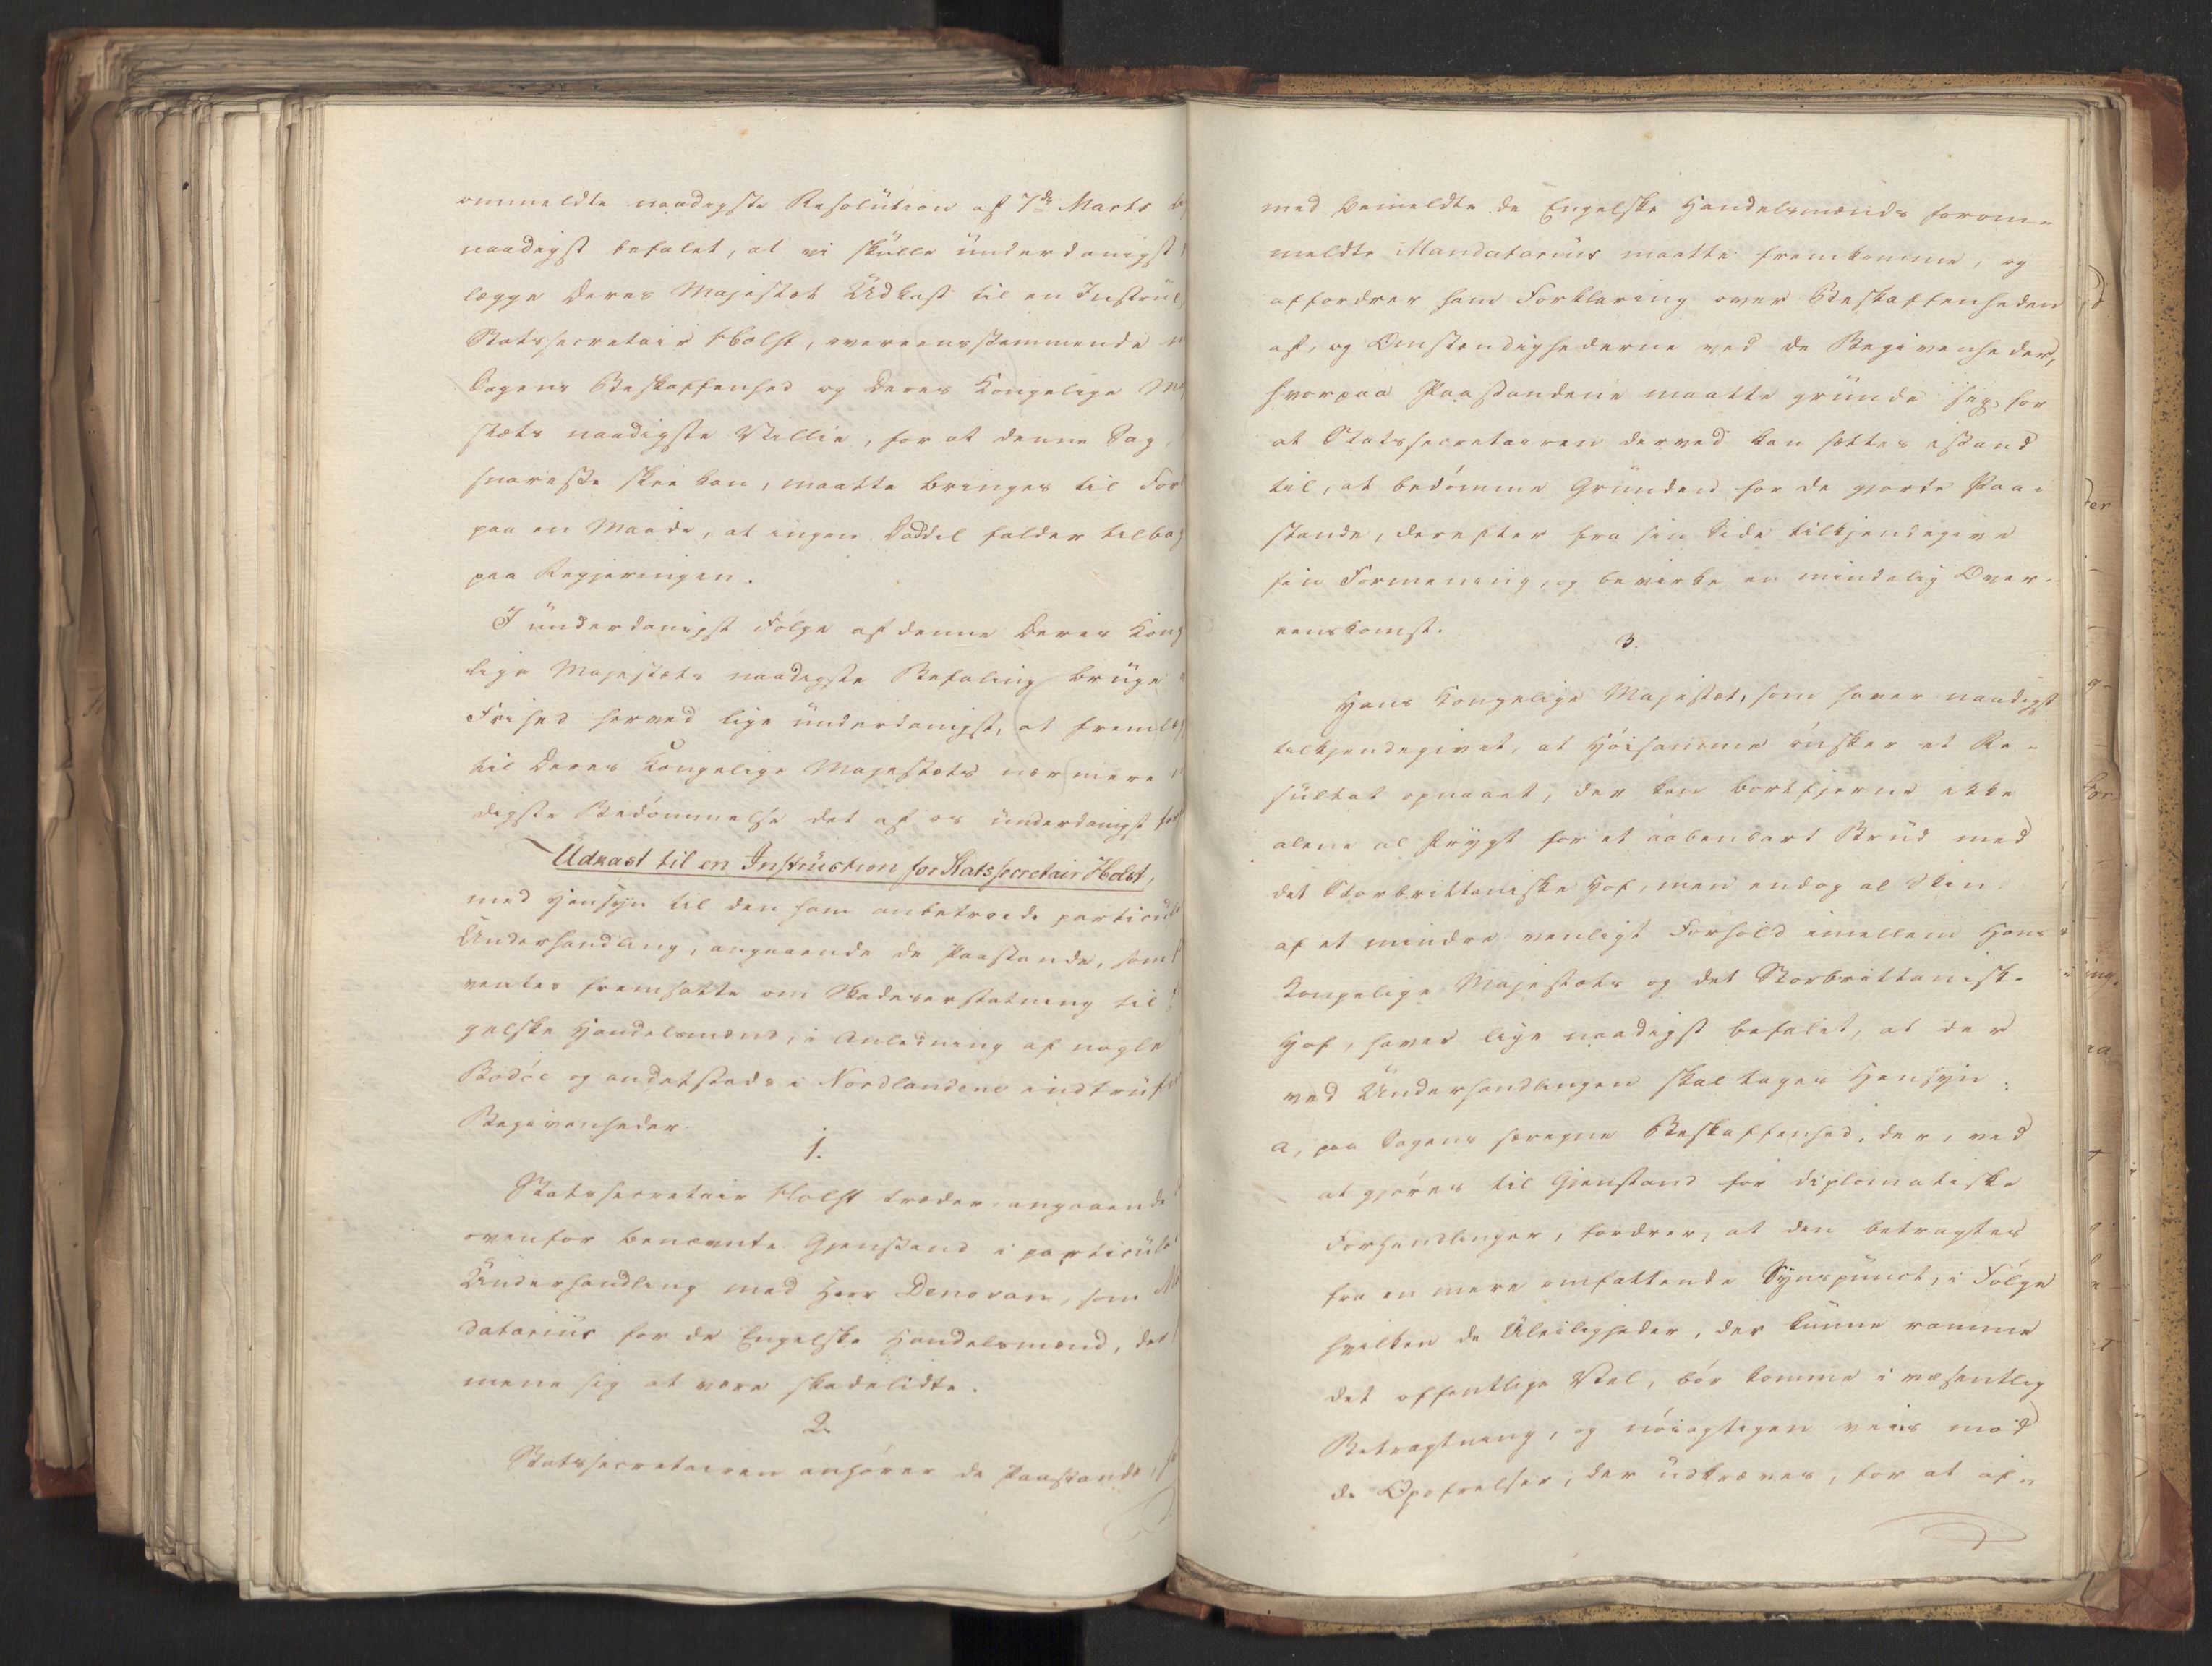 ommeldte naadigste Resolution af 7de Marts
naadigst befalet, at vi skulle underdanigst
lægge Deres Majestæt Udkast til en Instruc
Statssecretair Holst, overeensstemmende
Sagens Beskaffenhed og Deres Kongelige
stæts naadigste Villie, for at denne Sag,
snareste skee kan, maatte bringes til
paa en Maade, at ingen Daddel falder tilbag
paa Regjeringen.
I underdanigst Følge af denne Deres Kong
lige Majestæts naadigste Befaling bruge
Frihed herved lige underdanigst, at fremlæg
til Deres Kongelige Majestæts nærmere
digste Bedømmelse det af os underdanigst
Udkast til en Instruction for Statssecretair Holst,
med Hensyn til den ham anbetroede particul
Underhandling, angaaende de Paastande, som
ventes fremsatte om Skadeserstatning til
gelske Handelsmænd, i Anledning af nogle
Bodøe og andetsteds i Nordlandene indtruf
Begivenheder.
1.
Statssecretair Holst træder angaaende
ovenfor benævnte Gjenstand i particul
Underhandling med Herr Denovan, som
datarius for de Engelske Handelsmænd, der
mene sig at være skadelidte.
2.
Statssecretairen anhører de Paastande,
med bemeldte de Engelske Handelsmænds forom-
meldte Mandatarius maatte fremkomme, og
affordrer ham Forklaring over Beskaffenheden
af, og Omstændighederne ved de Begivenheder,
hvorpaa Paastandene maatte grunde sig, for
at Statssecretairen derved kan sættes istand
til, at bedømme Grunden for de gjorte Paa-
stande, derefter fra sin Side tilkjendegive
sin Formening, og bevirke en mindelig Over-
eenskomst.
3.
Hans Kongelige Majestæt, som haver naadigst
tilkjendegivet, at Høisamme ønsker et Re-
sultat opnaaet, der kan bortfjerne ikke
alene al Frygt for et aabenbart Brud med
det Storbrittaniske Hof, men endog al Skin
af et mindre venligt Forhold imellem Hans
Kongelige Majestæts og det Storbrittaniske
Hof, haver lige naadigst befalet, at der
ved Underhandlingen skal tages Hensyn:
a, paa Sagens særegne Beskaffenhed, der, ved
at gjøres til Gjenstand for diplomatiske
Forhandlinger, fordrer, at den betragtes
fra en mere omfattende Synspunct, i Følge
hvilken de Uleiligheder, der kunne ramme
det offentlige Vel, bør komme i væsentlig
Betragtning, og nøiagtigen veies mod
de Opofrelser, der udkræves, for at af-